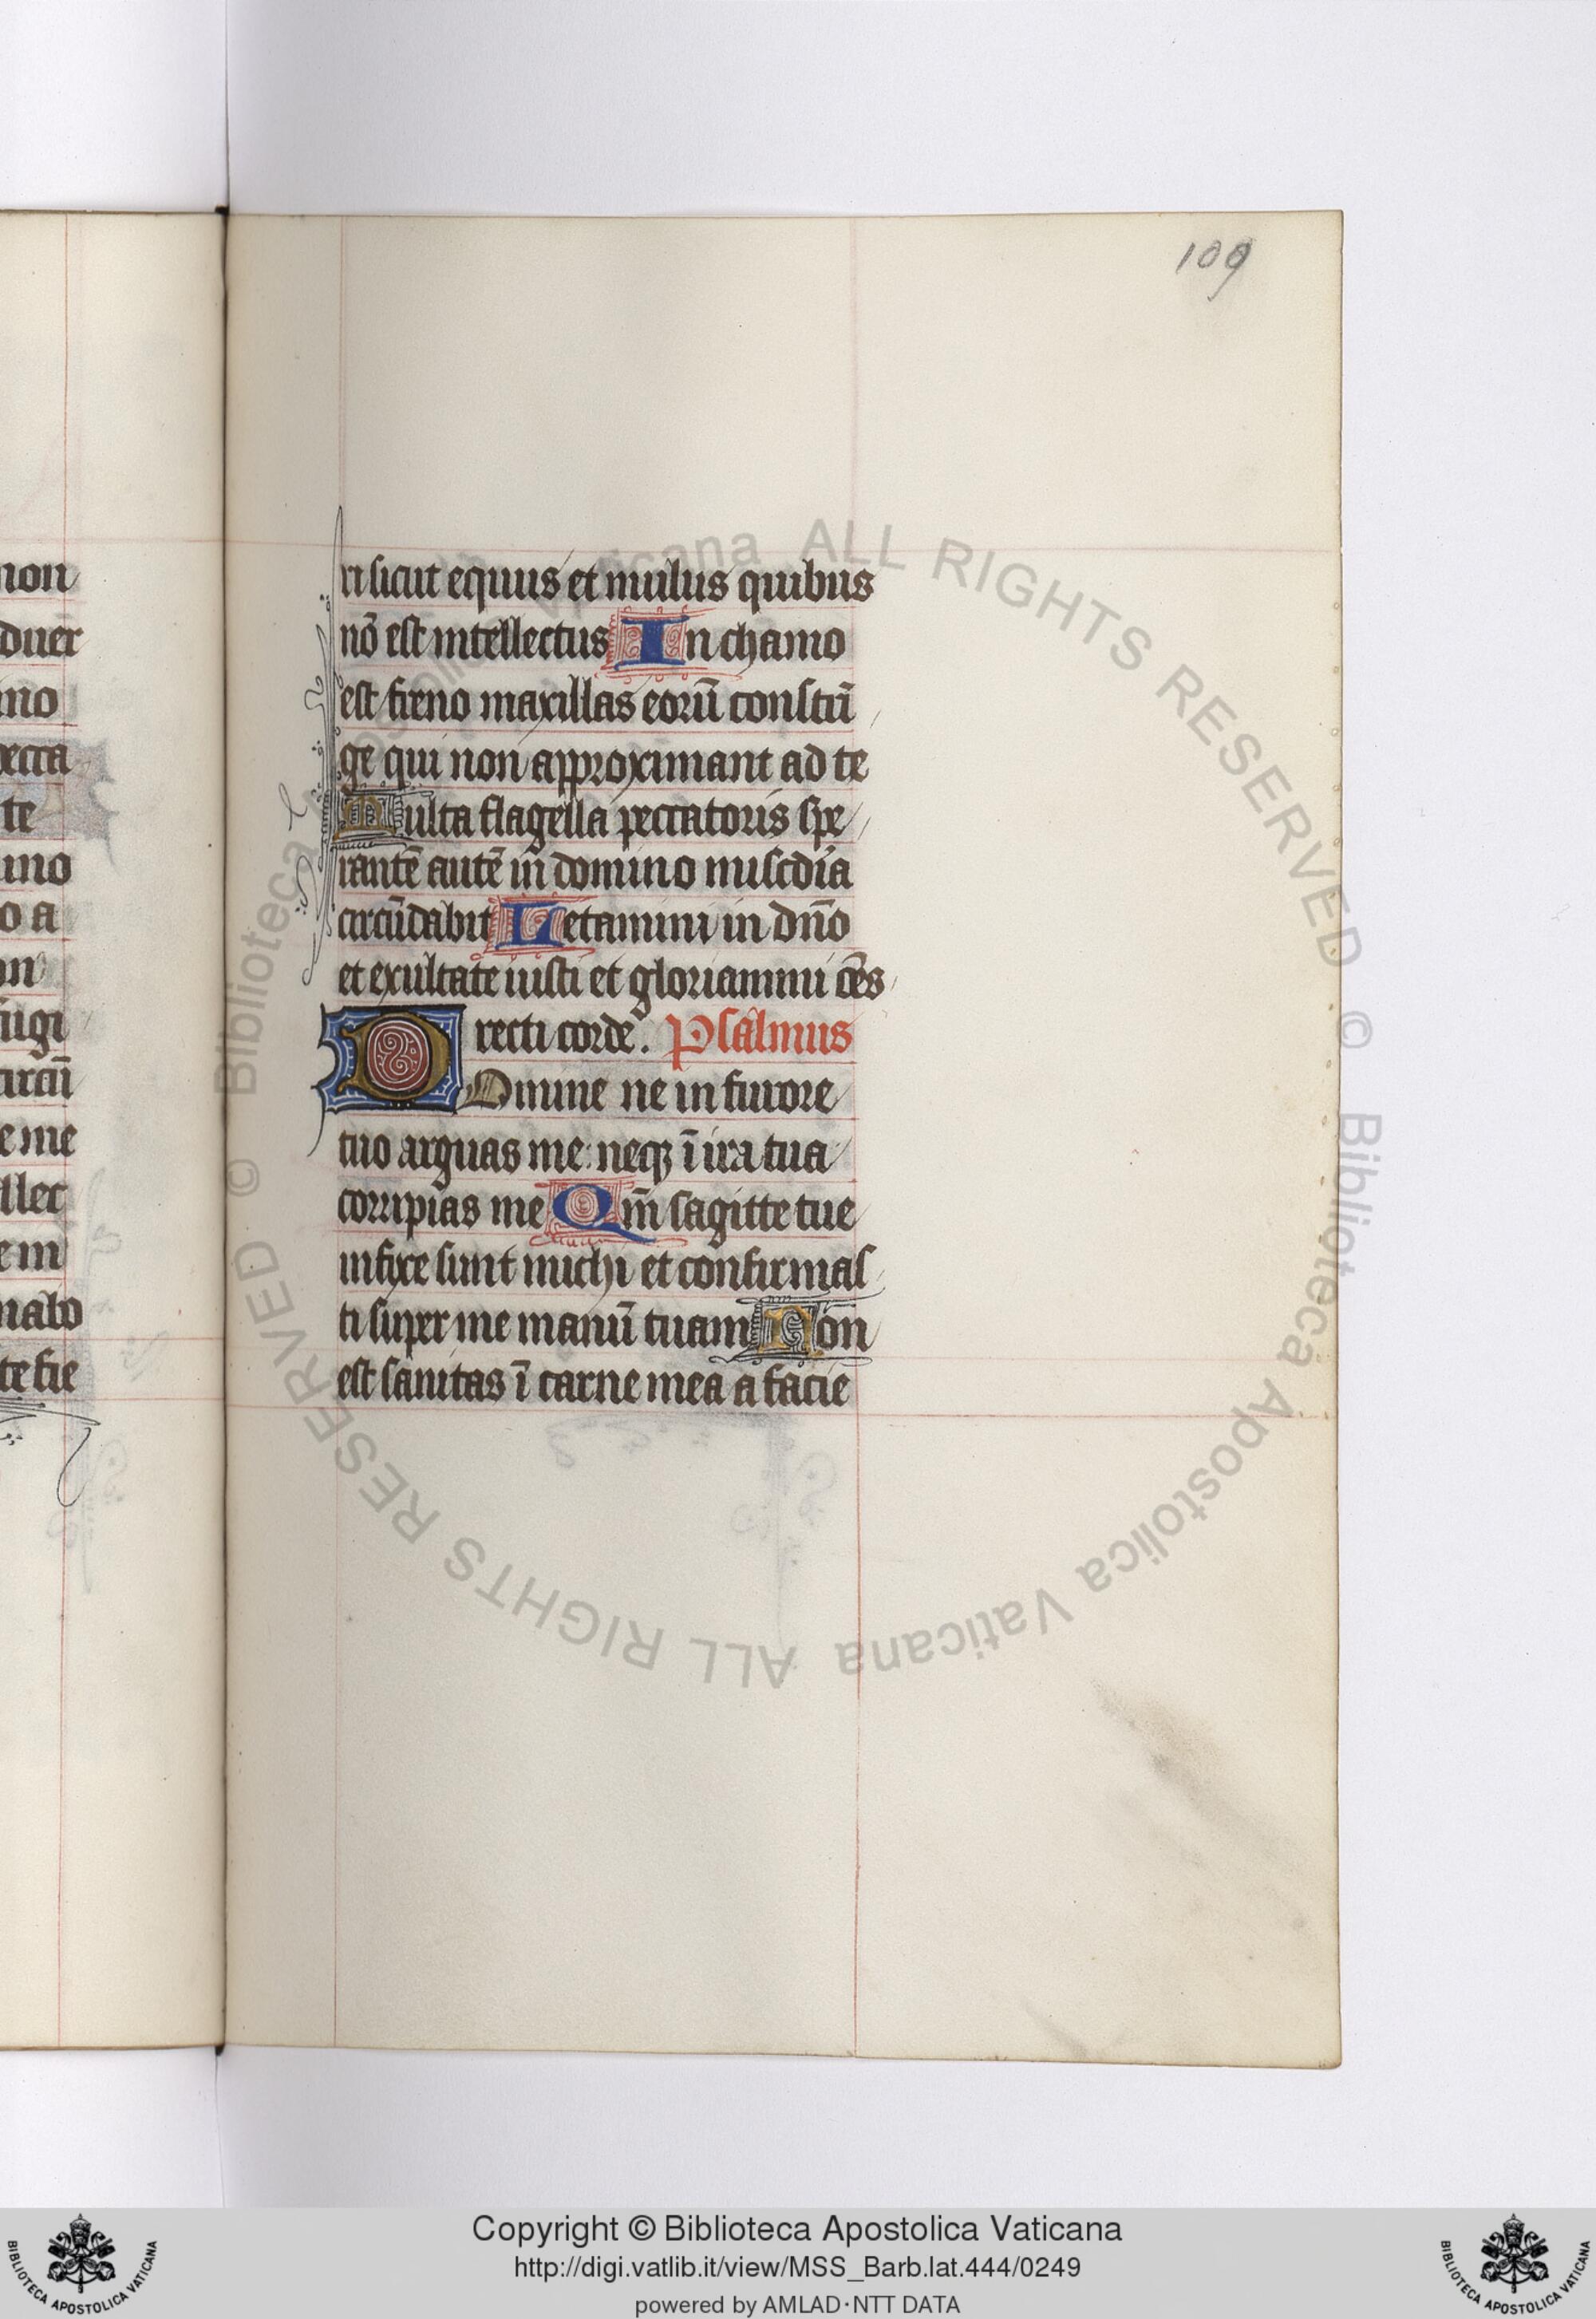 109
ri sicut equus et mulus quibus
nō est intellectus In chamo
est freno maxillas eorū constrī
ge qui non approximant ad te
Multa flagella peccatoris spe
rantē autē in domino miscdīa
circūdabit Letamini in dn̄o
et exultate iusti et gloriamini om̄s
recti corde. Psalmus
DOmine ne in furore
tuo arguas me: neqꝫ ī ira tua
corripias me Qm̄ sagitte tue
infixe sunt michi et confirmas
ti super me manū tuam Non
est sanitas ī carne mea a facie
non
duer
ino
pecca
te
o a
fugi
circū
e me
llec
e in
malo
te fie
© Biblioteca Apostolica Vaticana ALL RIGHTS RESERVED © Biblioteca Apostolica Vaticana ALL RIGHTS RESERVED
Copyright © Biblioteca Apostolica Vaticana
http://digi.vatlib.it/view/MSS_Barb.lat.444/0249
powered by AMLAD·NTT DATA
BIBLIOTECA APOSTOLICA VATICANA
BIBLIOTECA APOSTOLICA VATICANA